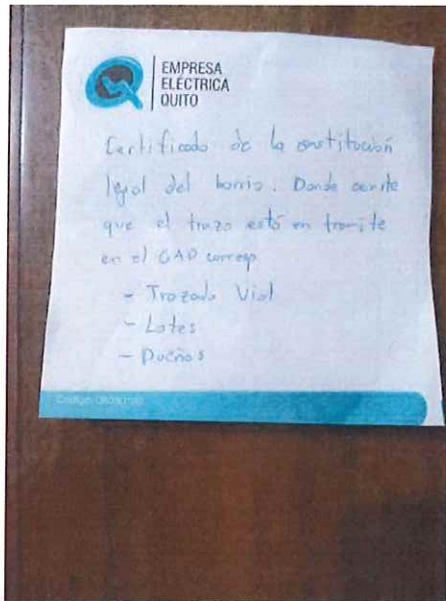 EMPRESA
ELÉCTRICA
QUITO
Certificado de la constitución
legal del barrio. Donde conste
que el trazo está en tramite
en el GAD corresp
- Trazado Vial
- Lotes
- Dueños